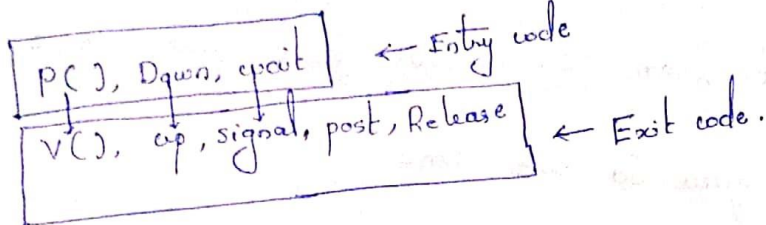 P( ), Down, wait ← Entry code
V( ), up, signal, post, Release ← Exit code.